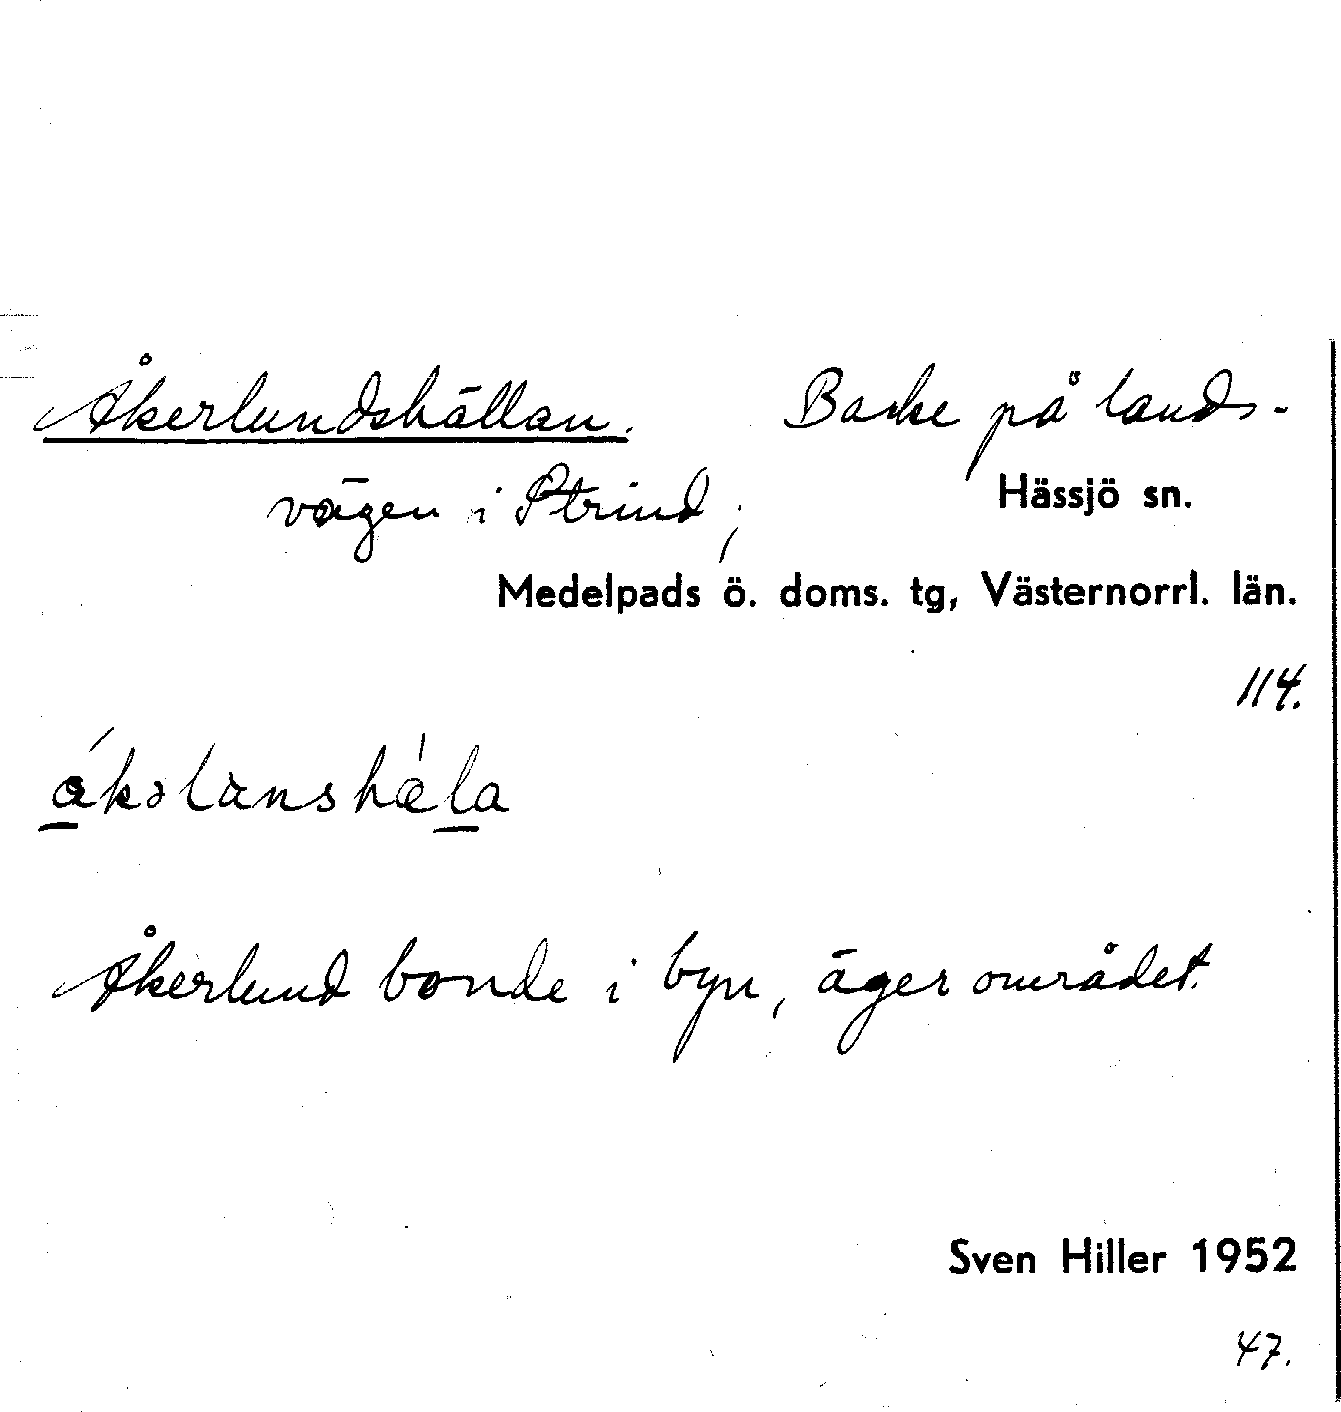 Åkerlundshällan. Backe på lands-
vägen i Strind, Hässjö sn.
Medelpads ö. doms. tg, Västernorrl. län.
114.
Åkerlund bonde i byn, äger området.
Sven Hiller 1952
47.